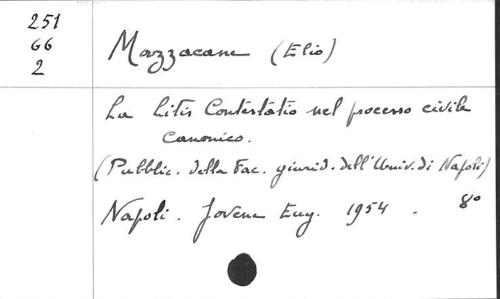 251
GG
2
Mazzacane (Elio)
La Litis Contestatio nel processo civile
canonico.
(Pubblic. della Fac. giurid. dell'Univ. di Napoli)
Napoli. Jovene Eug. 1954. 8º